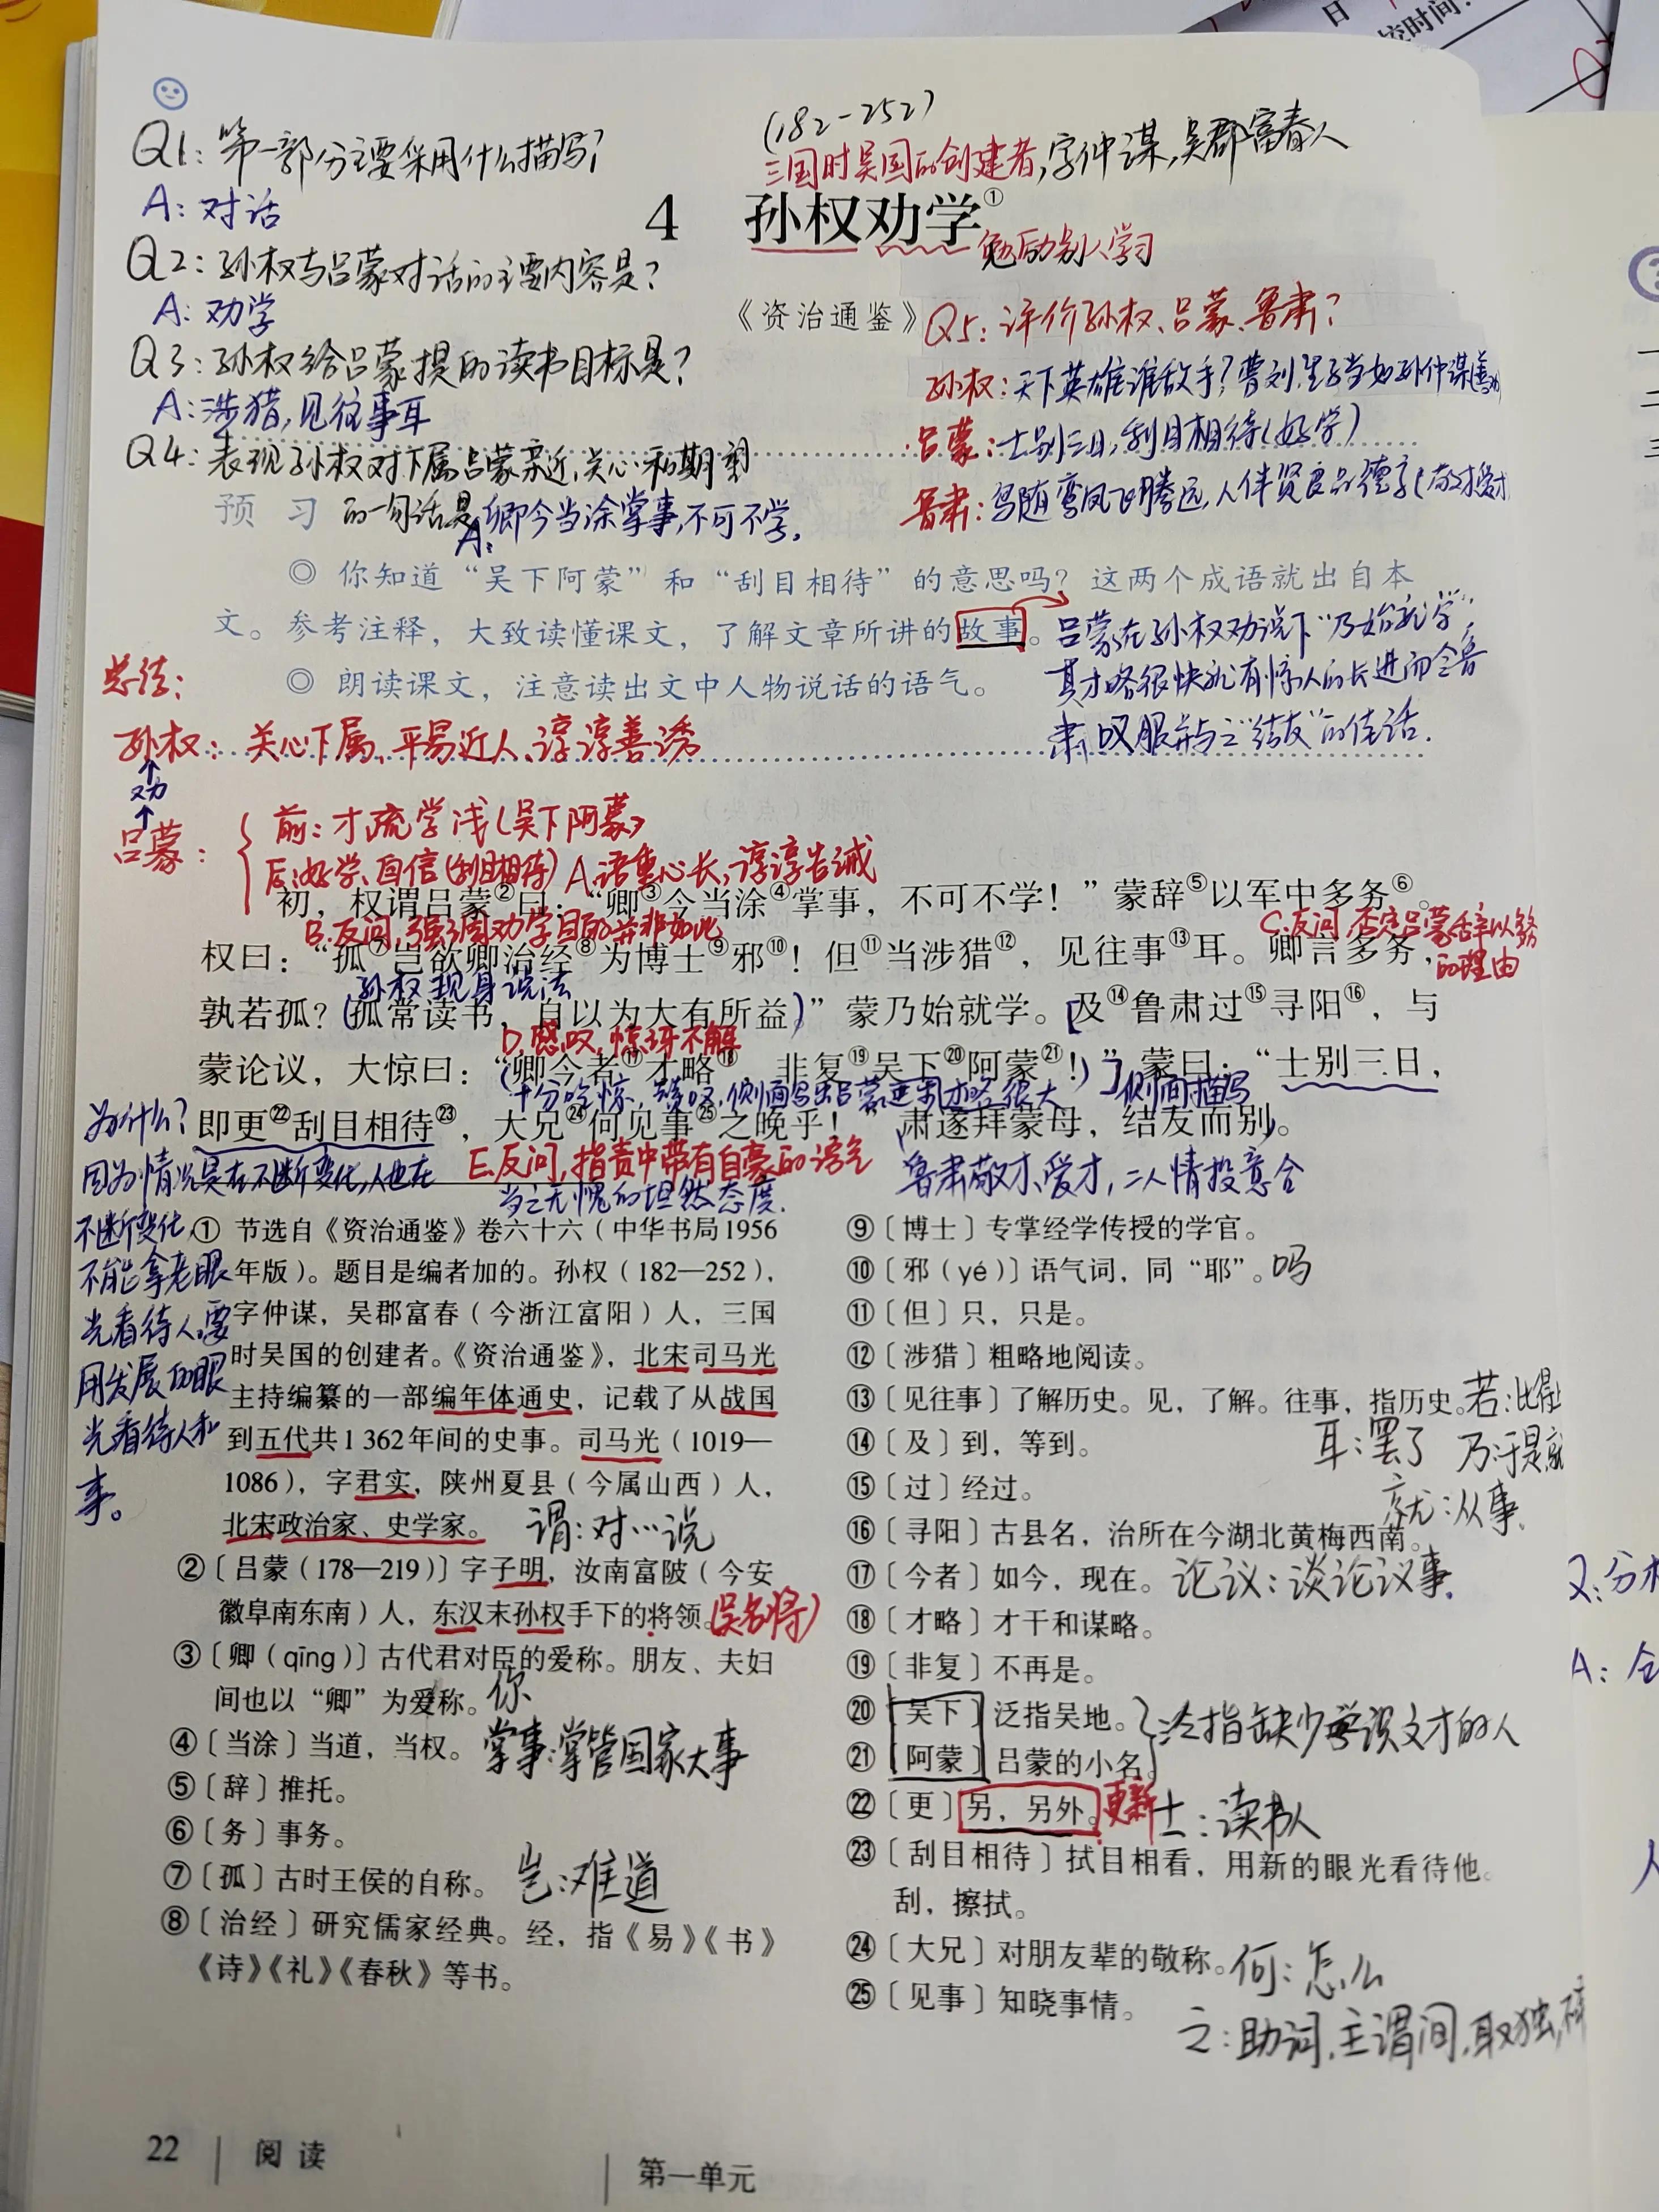 日
校时间:
(182-252)
三国时吴国的创建者,字仲谋,吴郡富春人
Q1: 第一部分主要采用什么描写?
A: 对话
4 孙权劝学①
勉励别人学习
Q2: 孙权与吕蒙对话的主要内容是?
A: 劝学
《资治通鉴》
Q3: 孙权给吕蒙提的读书目标是?
A: 涉猎,见往事耳
Q4: 表现孙权对下属吕蒙亲近,关心和期望
的一句话是
A: 卿今当涂掌事,不可不学。
Q5: 评价孙权、吕蒙、鲁肃?
孙权: 天下英雄谁敌手?曹刘,生子当如孙仲谋(善
吕蒙: 士别三日,刮目相待(好学)
鲁肃: 鸟随鸾凤飞腾远,人伴贤良品德高(敬才爱才
预习
◎ 你知道“吴下阿蒙”和“刮目相待”的意思吗?这两个成语就出自本
文。参考注释,大致读懂课文,了解文章所讲的故事。
◎ 朗读课文,注意读出文中人物说话的语气。
吕蒙在孙权劝说下“乃始就学”,
其才略很快就有惊人的长进而令鲁
肃叹服并与之“结友”的佳话.
总结:
孙权: 关心下属、平易近人、谆谆善诱
劝
吕蒙:
前: 才疏学浅(吴下阿蒙)
后: 好学、自信(刮目相待)
A.语重心长,谆谆告诫
初,权谓吕蒙②曰:“卿③今当涂④掌事,不可不学!”蒙辞⑤以军中多务⑥。
B.反问,强调劝学目的并非如此
C.反问,否定吕蒙辞以多务
的理由
权曰:“孤⑦岂欲卿治经⑧为博士⑨邪⑩!但⑪当涉猎⑫,见往事⑬耳。卿言多务,
孙权现身说法
孰若孤?孤常读书,自以为大有所益。”蒙乃始就学。及⑭鲁肃过⑮寻阳⑯,与
D.感叹,惊讶不解
蒙论议,大惊曰:“卿今者⑰才略⑱,非复⑲吴下⑳阿蒙㉑!”蒙曰:“士别三日,
十分吃惊,赞叹,侧面写出吕蒙进来才略很大
侧面描写
即更㉒刮目相待㉓,大兄㉔何见事㉕之晚乎!”肃遂拜蒙母,结友而别。
E.反问,指责中带有自豪的语气
当之无愧的坦然态度.
鲁肃敬才、爱才,二人情投意合
为什么?
因为情况是在不断变化,人也在
不断变化,
不能拿老眼
光看待人,要
用发展的眼
光看待人和
事。
① 节选自《资治通鉴》卷六十六(中华书局1956
年版)。题目是编者加的。孙权(182—252),
字仲谋,吴郡富春(今浙江富阳)人,三国
时吴国的创建者。《资治通鉴》,北宋司马光
主持编纂的一部编年体通史,记载了从战国
到五代共1 362年间的史事。司马光(1019—
1086),字君实,陕州夏县(今属山西)人,
北宋政治家、史学家。
谓: 对…说
②〔吕蒙(178—219)〕字子明,汝南富陂(今安
徽阜南东南)人,东汉末孙权手下的将领。
(吴名将)
③〔卿(qīng)〕古代君对臣的爱称。朋友、夫妇
间也以“卿”为爱称。
你
④〔当涂〕当道,当权。
掌事: 掌管国家大事
⑤〔辞〕推托。
⑥〔务〕事务。
⑦〔孤〕古时王侯的自称。
岂: 难道
⑧〔治经〕研究儒家经典。经,指《易》《书》
《诗》《礼》《春秋》等书。
⑨〔博士〕专掌经学传授的学官。
⑩〔邪(yé)〕语气词,同“耶”。
吗
⑪〔但〕只,只是。
⑫〔涉猎〕粗略地阅读。
⑬〔见往事〕了解历史。见,了解。往事,指历史。
若: 比得上
⑭〔及〕到,等到。
耳: 罢了
乃: 于是就
⑮〔过〕经过。
就: 从事.
⑯〔寻阳〕古县名,治所在今湖北黄梅西南。
⑰〔今者〕如今,现在。
论议: 谈论议事.
⑱〔才略〕才干和谋略。
⑲〔非复〕不再是。
⑳〔吴下〕泛指吴地。
㉑〔阿蒙〕吕蒙的小名。
泛指缺少学识文才的人
㉒〔更〕另,另外。
更新
士: 读书人
㉓〔刮目相待〕拭目相看,用新的眼光看待他。
刮,擦拭。
㉔〔大兄〕对朋友辈的敬称。
何: 怎么
㉕〔见事〕知晓事情。
之: 助词,主谓间,取独,
22 阅读
第一单元